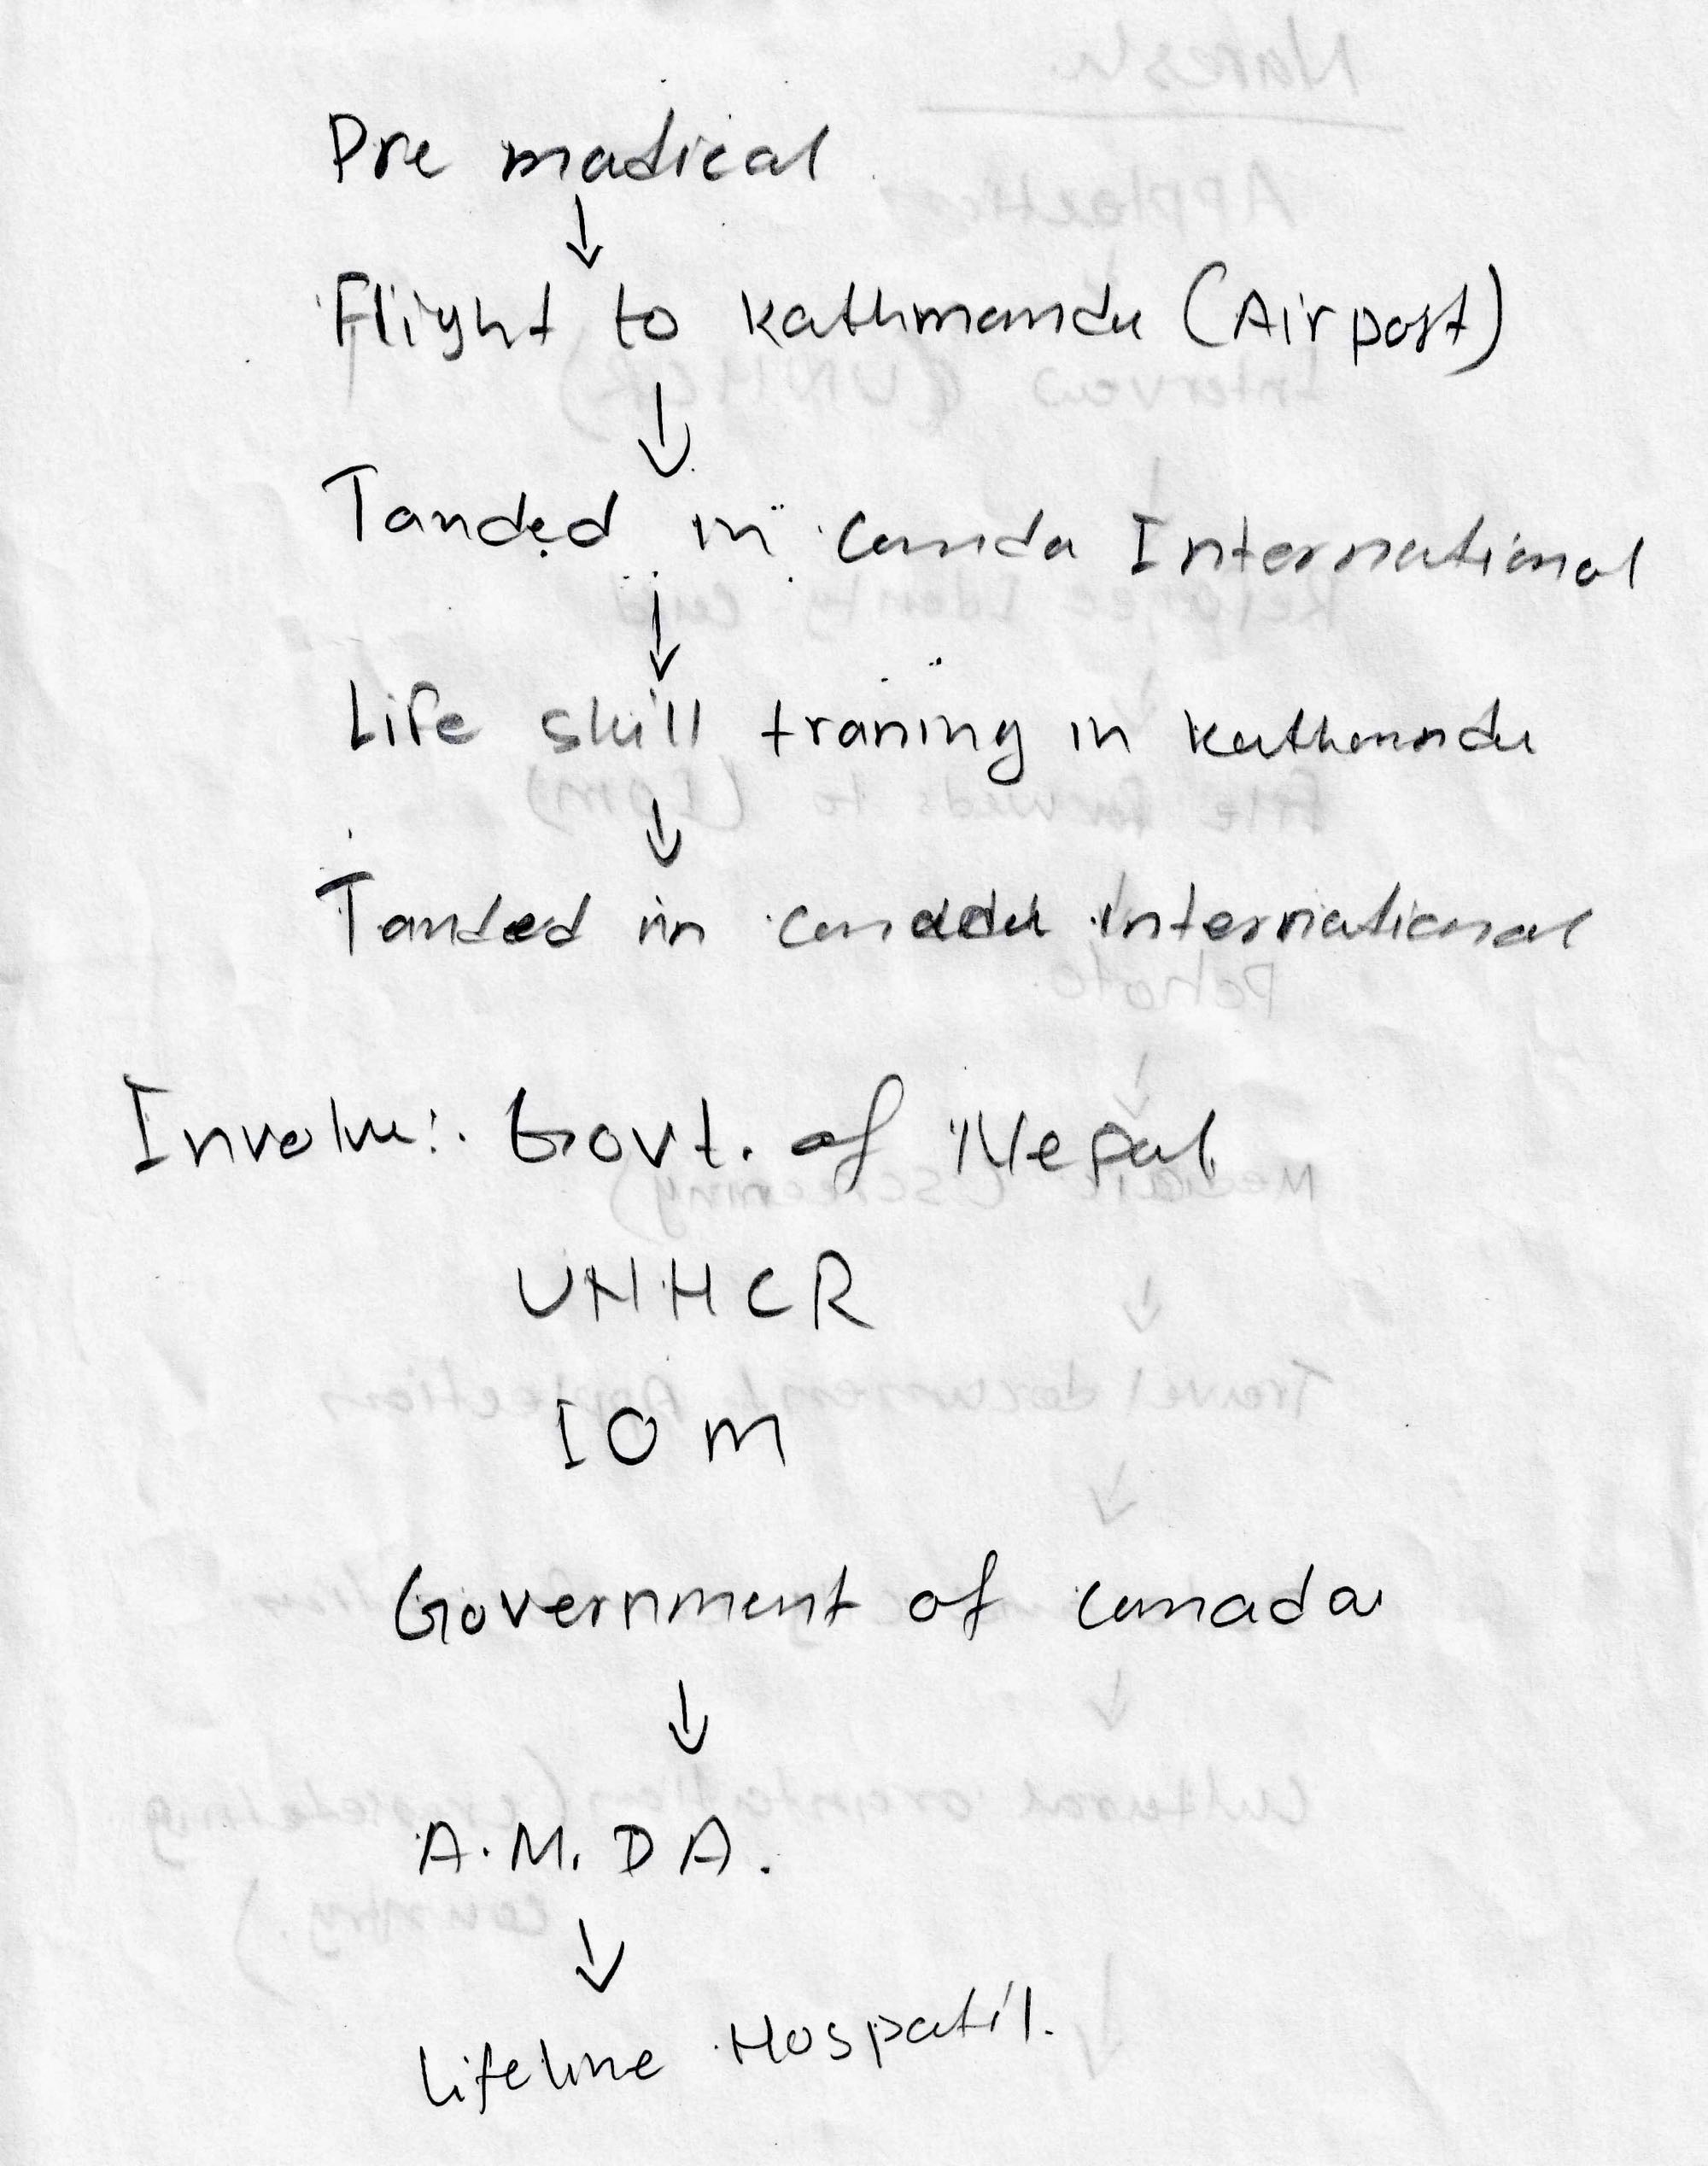 Pre madical
↓
Flight to Kathmandu (Airport)
↓
Tanded in Canda International
↓
Life skill traning in Kathmandu
↓
Tanded in Canadda International
Involve:. Govt. of Nepal
UNHCR
IOM
Government of Canada
↓
A.M.DA.
↓
Lifeline Hospatil.